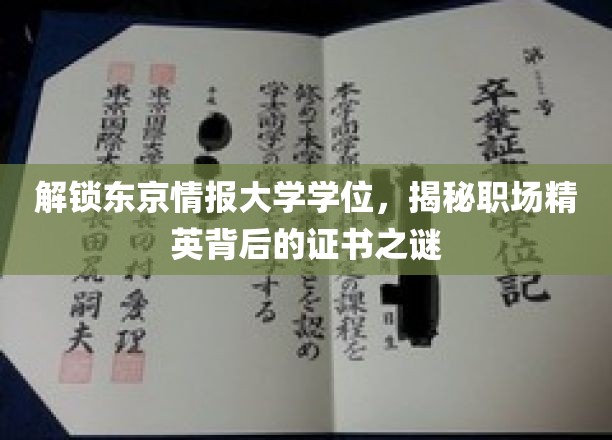 解锁东京情报大学学位，揭秘职场精
英背后的证书之谜
第 号
卒業証書 学位記
本学商学部 定の課程を
修めて本学 ことを認め
学士(商学)の する
平成
東京国際大学 村愛理
東京国際大 田尻嗣夫